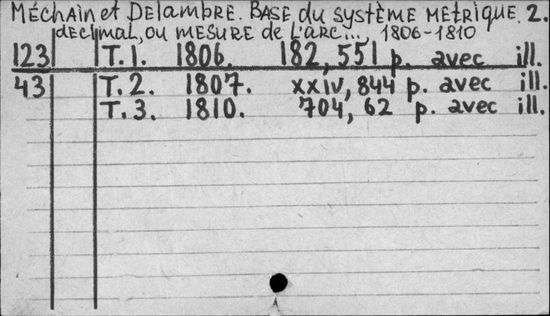 Méchain et Delambre. Base du système métrique 2.
décimal, ou mesure de l'arc..., 1806-1810
123 T. 1. 1806. 182, 551 p. avec ill.
43 T. 2. 1807. xxiv, 844 p. avec ill.
T. 3. 1810. 704, 62 p. avec ill.